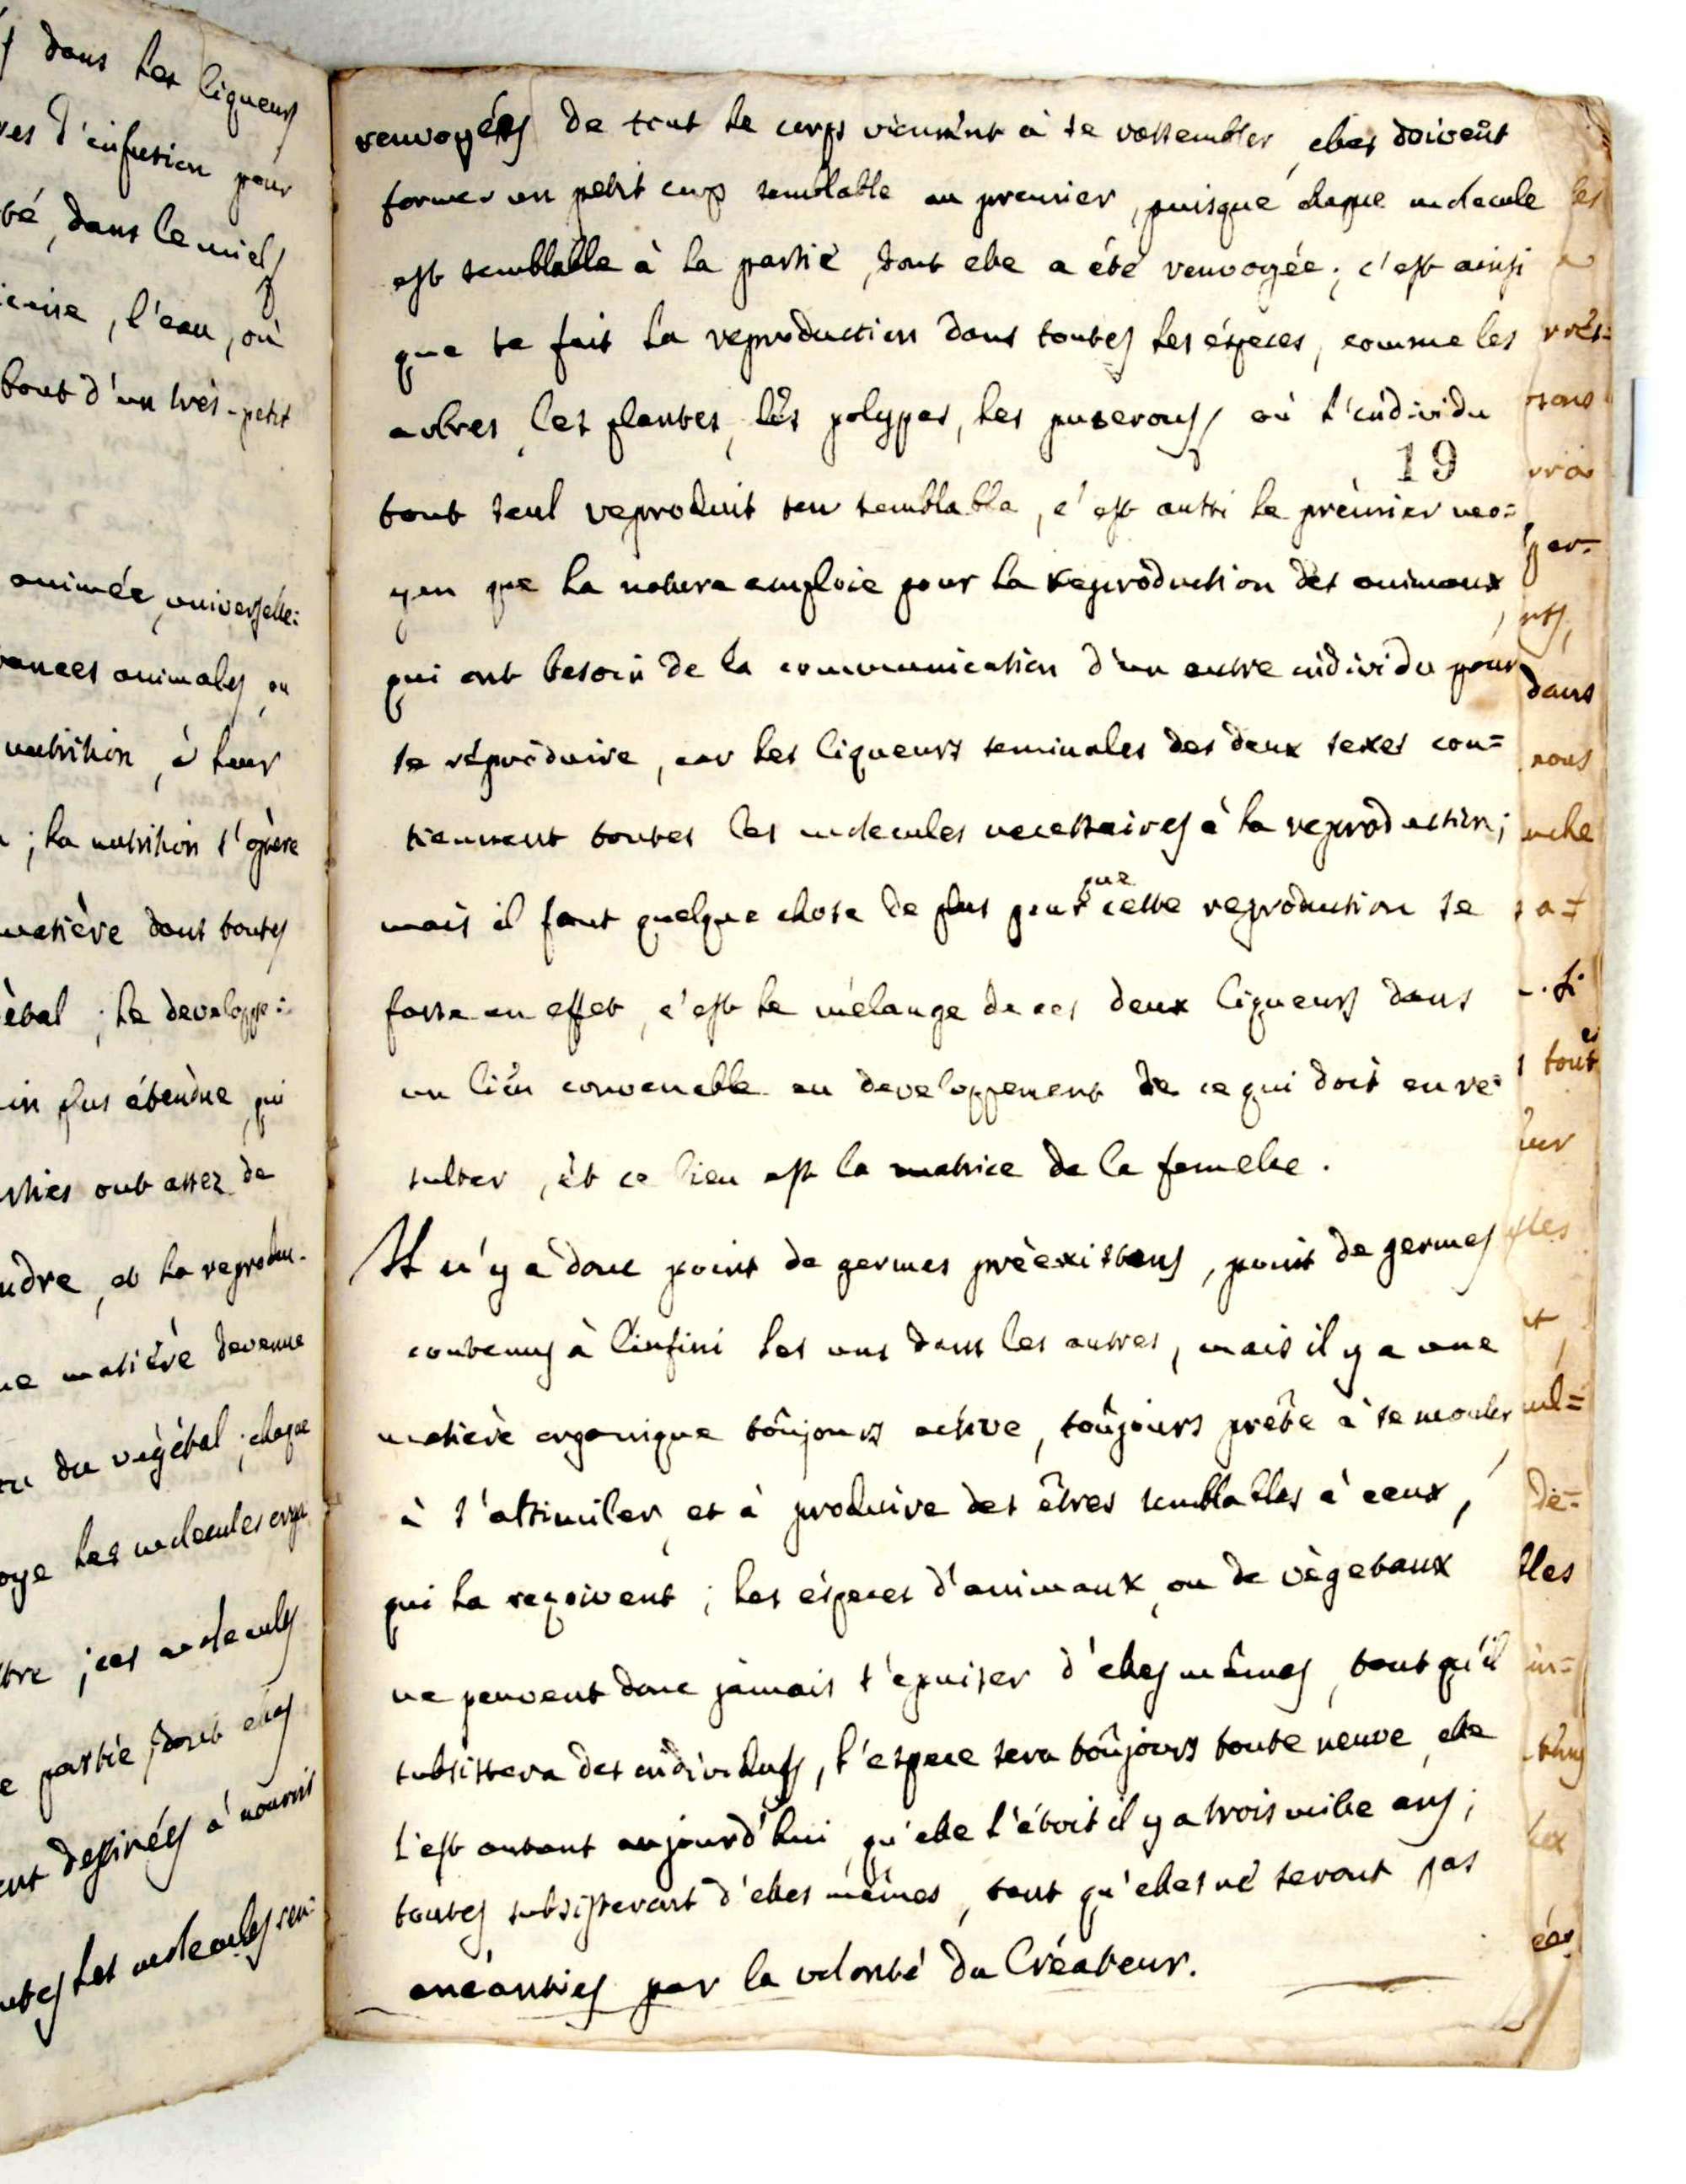 dans les liqueurs
d'infusion pour
dans le miel
l'eau, où
bout d'un très-petit
animée, universelle=
animales, ou
nutrition, à leur
; la nutrition s'opère
matière dont toutes
; le developpe=
plus étendue, qui
ont assez de
et la reproduc-
matière devenue
du végétal ; chaque
les molecules orga
; ces molecules
partie, dont elles
destinées à nourrir
les molecules
renvoyées de tout le corps viennent à se rassembler, elles doivent
former un petit corps semblable au premier, puisque chaque molecule
est semblable à la partie, dont elle a été renvoyée ; c'est ainsi
que se fait la reproduction dans toutes les éspeces, comme les
arbres, les plantes, les polypes, les pucerons, où l'individu
19
tout seul reproduit son semblable, c'est aussi le prèmier mo=
yen que la nature emploie pour la reproduction des animaux,
qui ont besoin de la communication d'un autre individu pour
se réproduire, car les liqueurs seminales des deux sexes con=
tiennent toutes les molecules necessaires à la reproduction ;
que
mais il faut quelque chose de plus pour cette reproduction se
fasse en effet, c'est le mélange de ces deux liqueurs dans
un lieu convenable au developpement de ce qui doit en re=
sulter, et ce lieu est la matrice de la femelle.
Il n'y a donc point de germes prèexistens, point de germes
contenus à l'infini les uns dans les autres, mais il y a une
matière organique toûjours active, toûjours prête à se mouler,
à s'assimiler, et à produire des êtres semblables à ceux,
qui la reçoivent ; les éspeces d'animaux, ou de vègetaux
ne peuvent donc jamais s'epuiser d'elles mêmes, tant qu'il
subsistera des individus, l'espece sera toûjours toute neuve, elle
l'est autant aujourd'hui, qu'elle l'étoit il y a trois mille ans ;
toutes subsisteront d'elles mêmes, tant qu'elles ne seront pas
anéanties par la volonté du Créateur.
les
dans
nous
tout